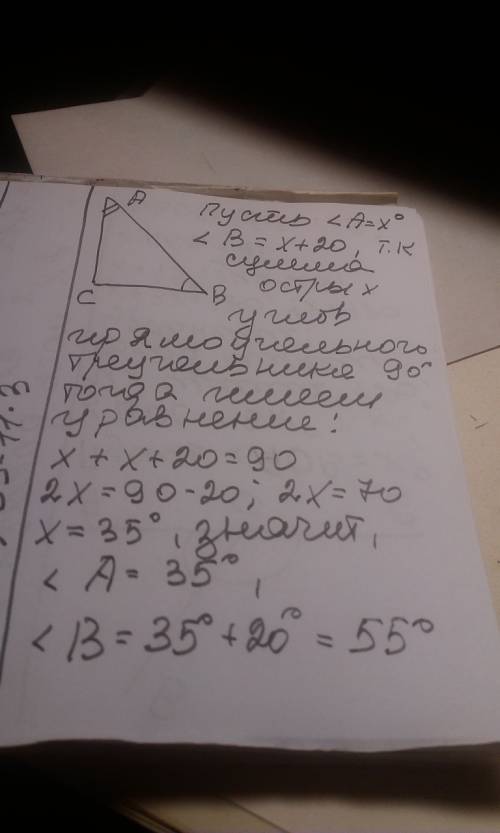 A
C
B
Пусть <A=x°
< B = x+20, т.к
сумма
острых
углов
прямоугольного
треугольника 90°
тогда имеем
уравнение!
x + x + 20 = 90
2x = 90 - 20; 2x = 70
x = 35°, значит,
< A = 35°,
< B = 35° + 20° = 55°